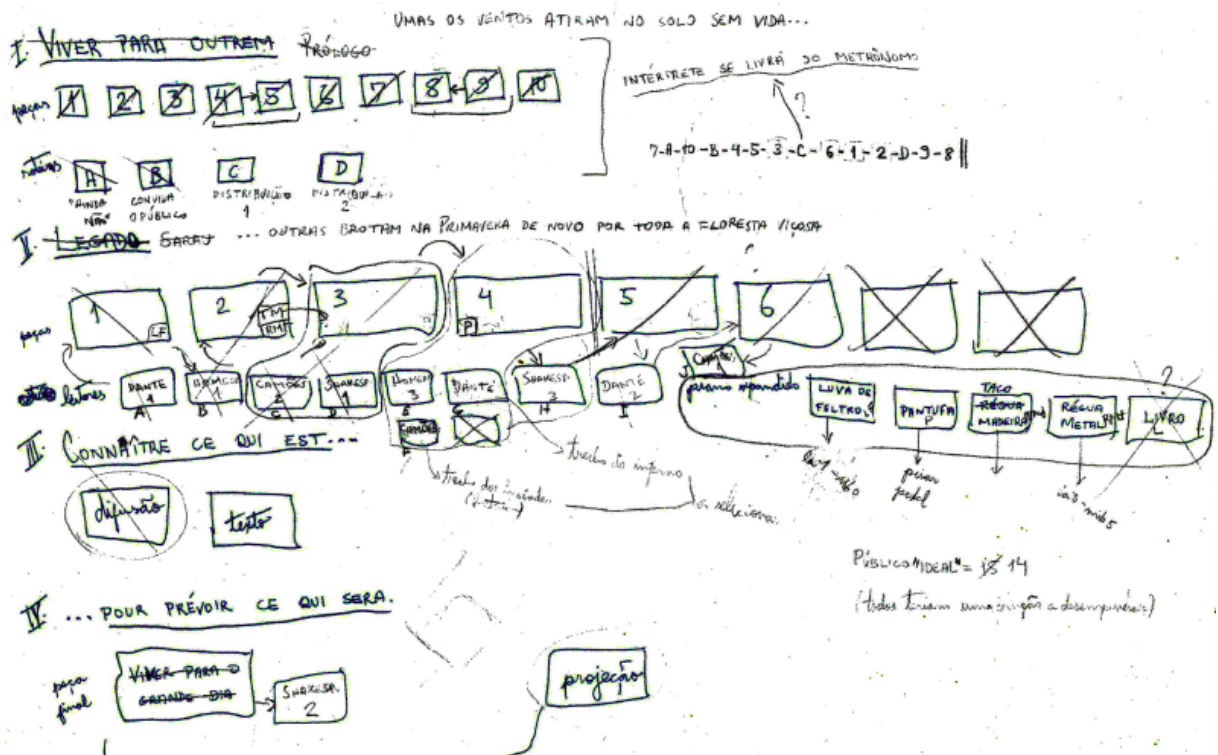 UMAS OS VENTOS ATIRAM NO SOLO SEM VIDA...
I. VIVER PARA OUTREM PRÓLOGO
peças 1 2 3 4 5 6 7 8 9 10
INTÉRPRETE SE LIVRA DO METRÔNOMO
?
7-A-10-B-4-5-3-C-6-1-2-D-9-8
A B C D
"AINDA NÃO" CONVIDA O PÚBLICO DISTRIBUIÇÃO 1 DISTRIBUIÇÃO 2
II. LEGADO ... OUTRAS BROTAM NA PRIMAVERA DE NOVO POR TODA A FLORESTA VIÇOSA
peças 1 LF 2 TM RM 3 4 P 5 6
leitores DANTE 1 HOMERO 1 CAMÕES 2 SHAKESP. 1 HOMERO 3 DANTE SHAKESP. 3 DANTE 2 CAMÕES 1
A B C D E G H I
CAMÕES
F
piano expandido LUVA DE FELTRO PANTUFA P TACO RÉGUA MADEIRA RÉGUA METAL LIVRO L ?
III. CONNAÎTRE CE QUI EST...
difusão texto
trecho do inferno
trecho dos
a selecionar
pisar pedal
PÚBLICO "IDEAL" = 15 14
(todos teriam uma função a desempenhar)
IV. ... POUR PRÉVOIR CE QUI SERA.
peça final VIVER PARA O GRANDE DIA SHAKESP. 2
projeção